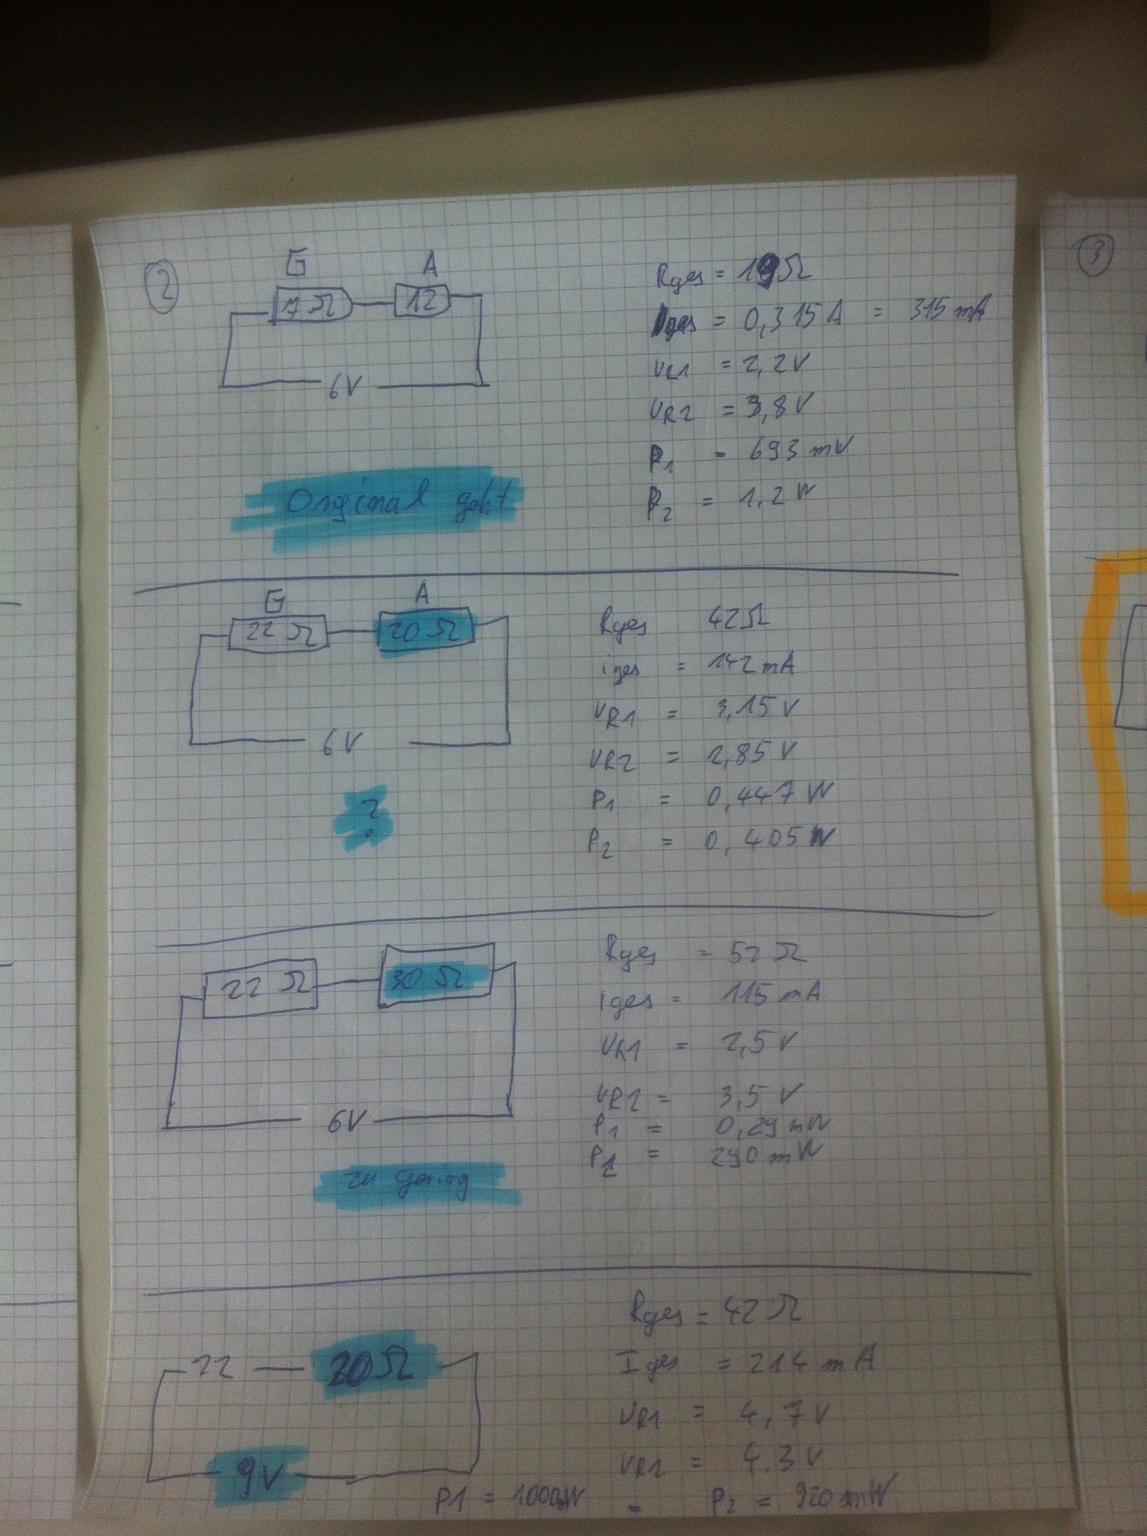 ②
G A
17 Ω 12
6V
Rges = 19Ω
Iges = 0,315A = 315 mA
UR1 = 2,2V
UR2 = 3,8V
P1 = 693 mW
P2 = 1,2 W
Orginal geht
G A
22 Ω 20 Ω
6V
Rges 42Ω
iges = 142 mA
UR1 = 3,15 V
UR2 = 2,85 V
P1 = 0,447 W
P2 = 0,405 W
?
22 Ω 30 Ω
6V
Rges = 52 Ω
Iges = 115 mA
UR1 = 2,5 V
UR2 = 3,5 V
P1 = 0,29 mW
P2 = 290 mW
zu gering
22 20Ω
9V
Rges = 42 Ω
Iges = 214 mA
UR1 = 4,7V
UR2 = 4.3V
P1 = 1000mW = P2 = 920 mW
③